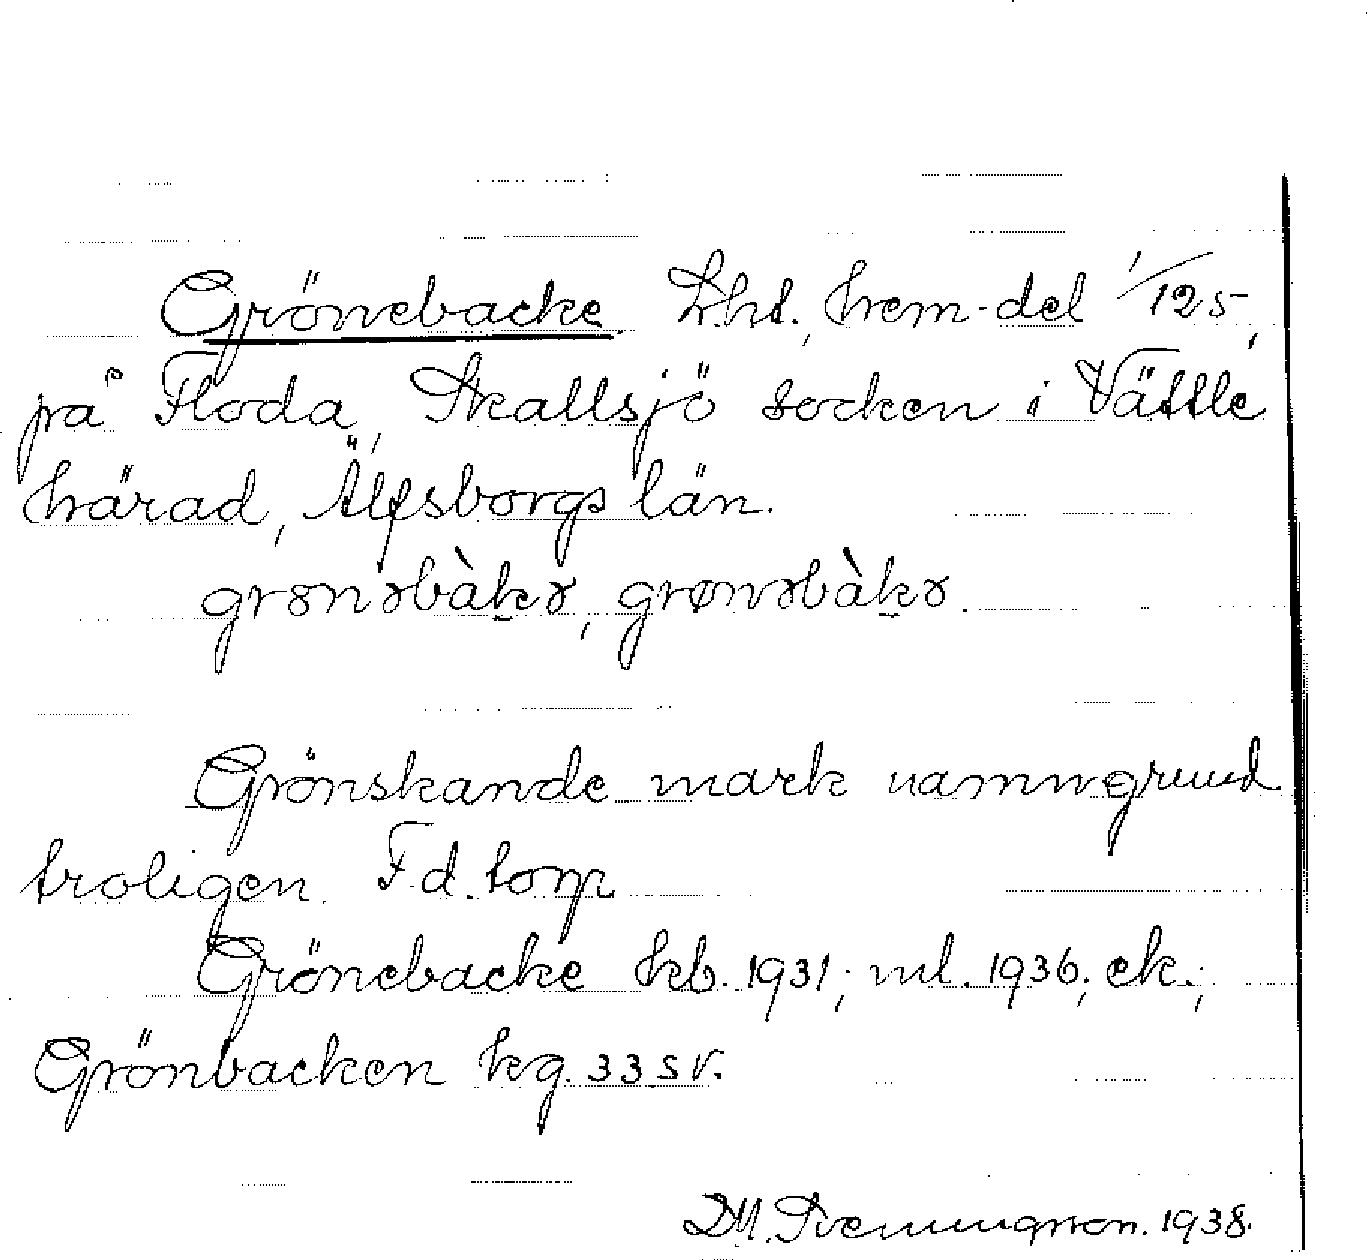 Grönebacke Lht., hem-del 1/125,
på Floda, Skallsjö socken i Vättle
härad, Älfsborgs län.
grønəbàkə, grønəbàkə.
Grönskande mark namngrund
troligen. F.d. torp
Grönebacke kb. 1931; ml. 1936; ek.;
Grönbacken kg. 33 sv.
1938.